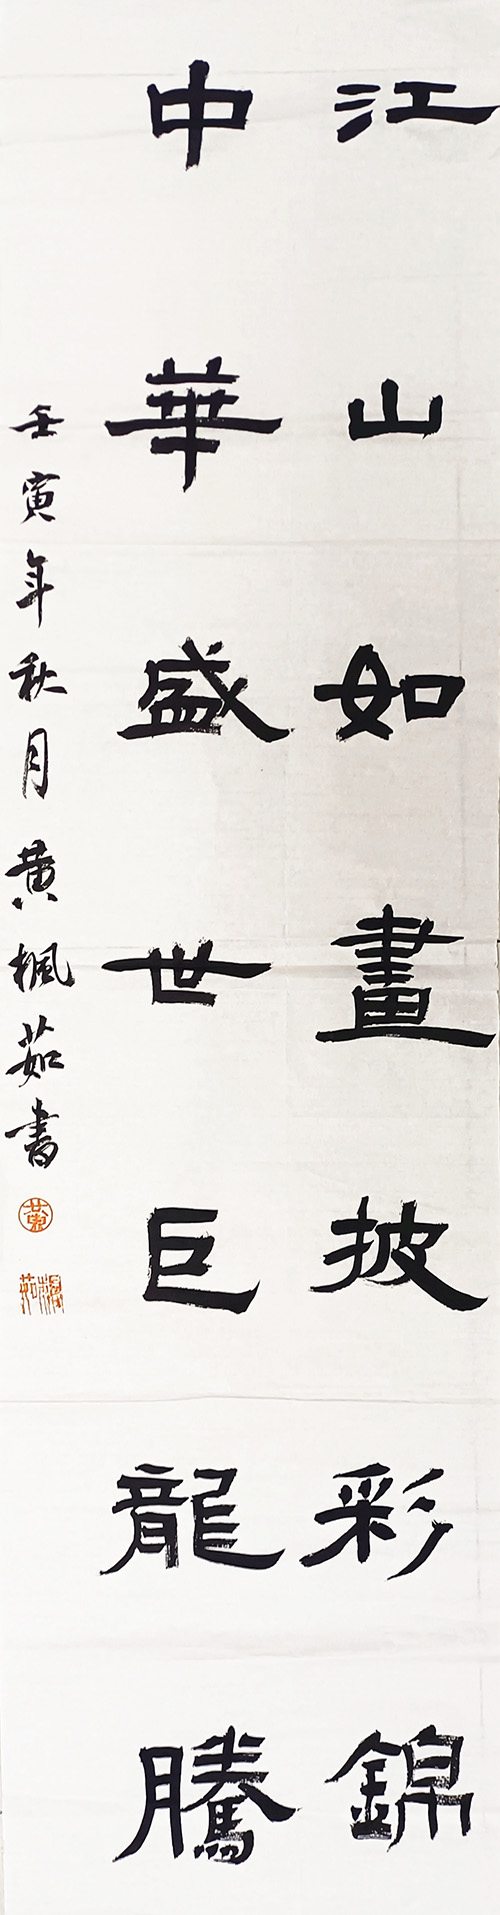 江山如畫披彩錦
中華盛世巨龍騰
壬寅年秋月黄楓茹書
黄
楓茹